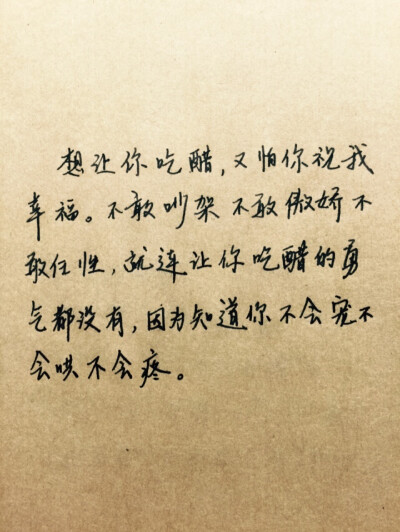 想让你吃醋,又怕你祝我
幸福。不敢吵架不敢傲娇不
敢任性,就连让你吃醋的勇
气都没有,因为知道你不会宠不
会哄不会疼。